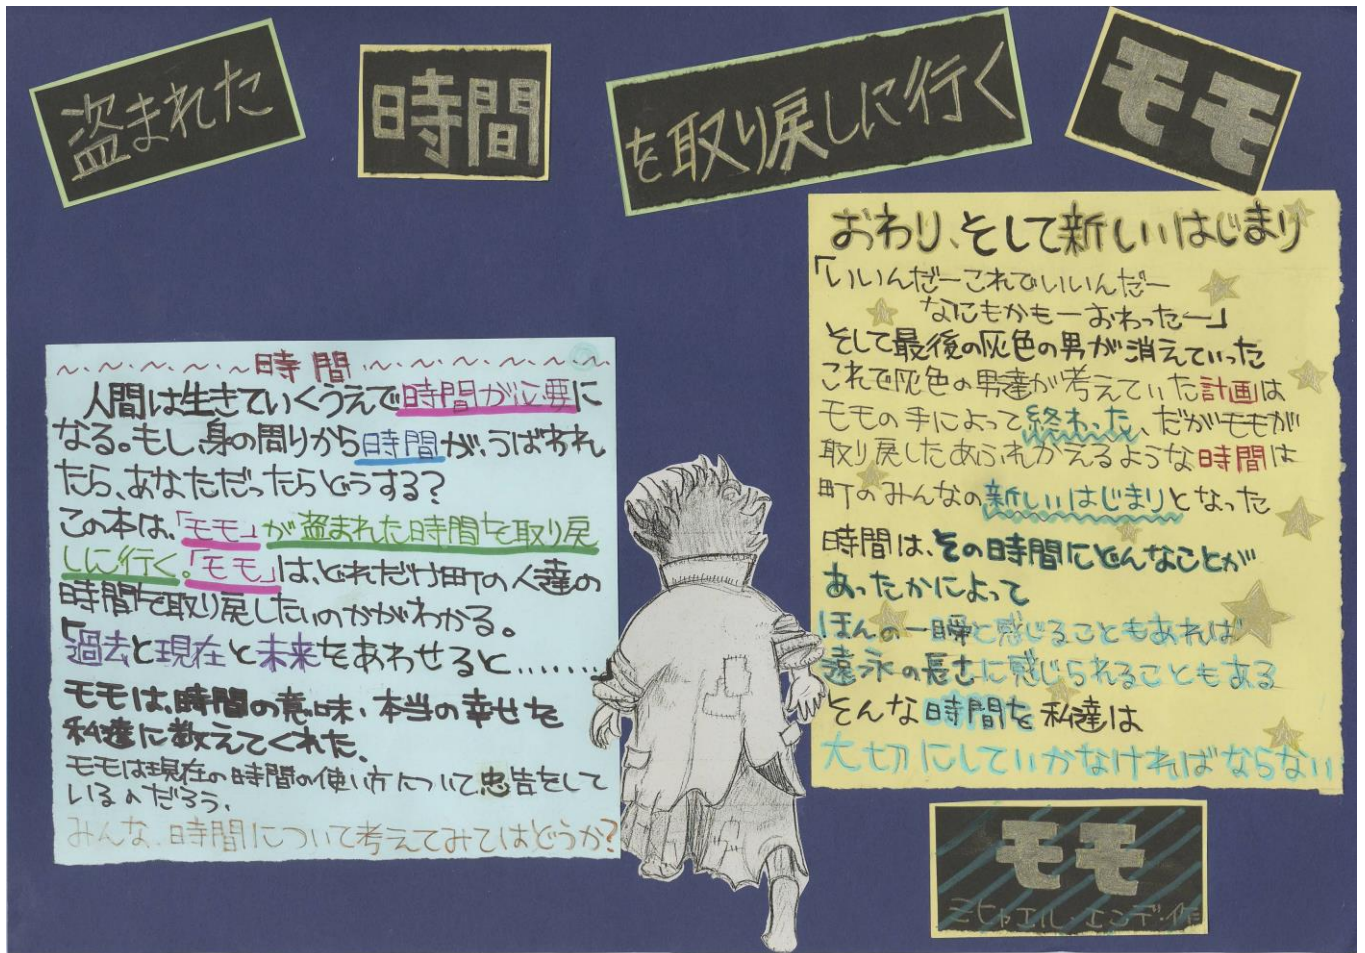 盗まれた
時間
を取り戻しに行く
モモ
時間
人間は生きていくうえで時間が必要に
なる。もし、身の周りから時間が、うばわれ
たら、あなただったらどうする?
この本は、「モモ」が盗まれた時間を取り戻
しに行く。「モモ」は、どれだけ町の人達の
時間を取り戻したいのかがわかる。
「過去と現在と未来をあわせると………」
モモは、時間の意味、本当の幸せを
私達に教えてくれた。
モモは現在の時間の使い方について忠告をして
いるのだろう。
みんな、時間について考えてみてはどうか?
おわり、そして新しいはじまり
「いいんだーこれでいいんだー
なにもかもーおわったー」
そして最後の灰色の男が消えていった
これで灰色の男達が考えていた計画は
モモの手によって終わった、だがモモが
取り戻したあふれかえるような時間は
町のみんなの新しいはじまりとなった
時間は、その時間にどんなことが
あったかによって
ほんの一瞬と感じることもあれば
遠永の長さに感じられることもある
そんな時間を私達は
大切にしていかなければならない
モモ
ミヒャエル・エンデ・作